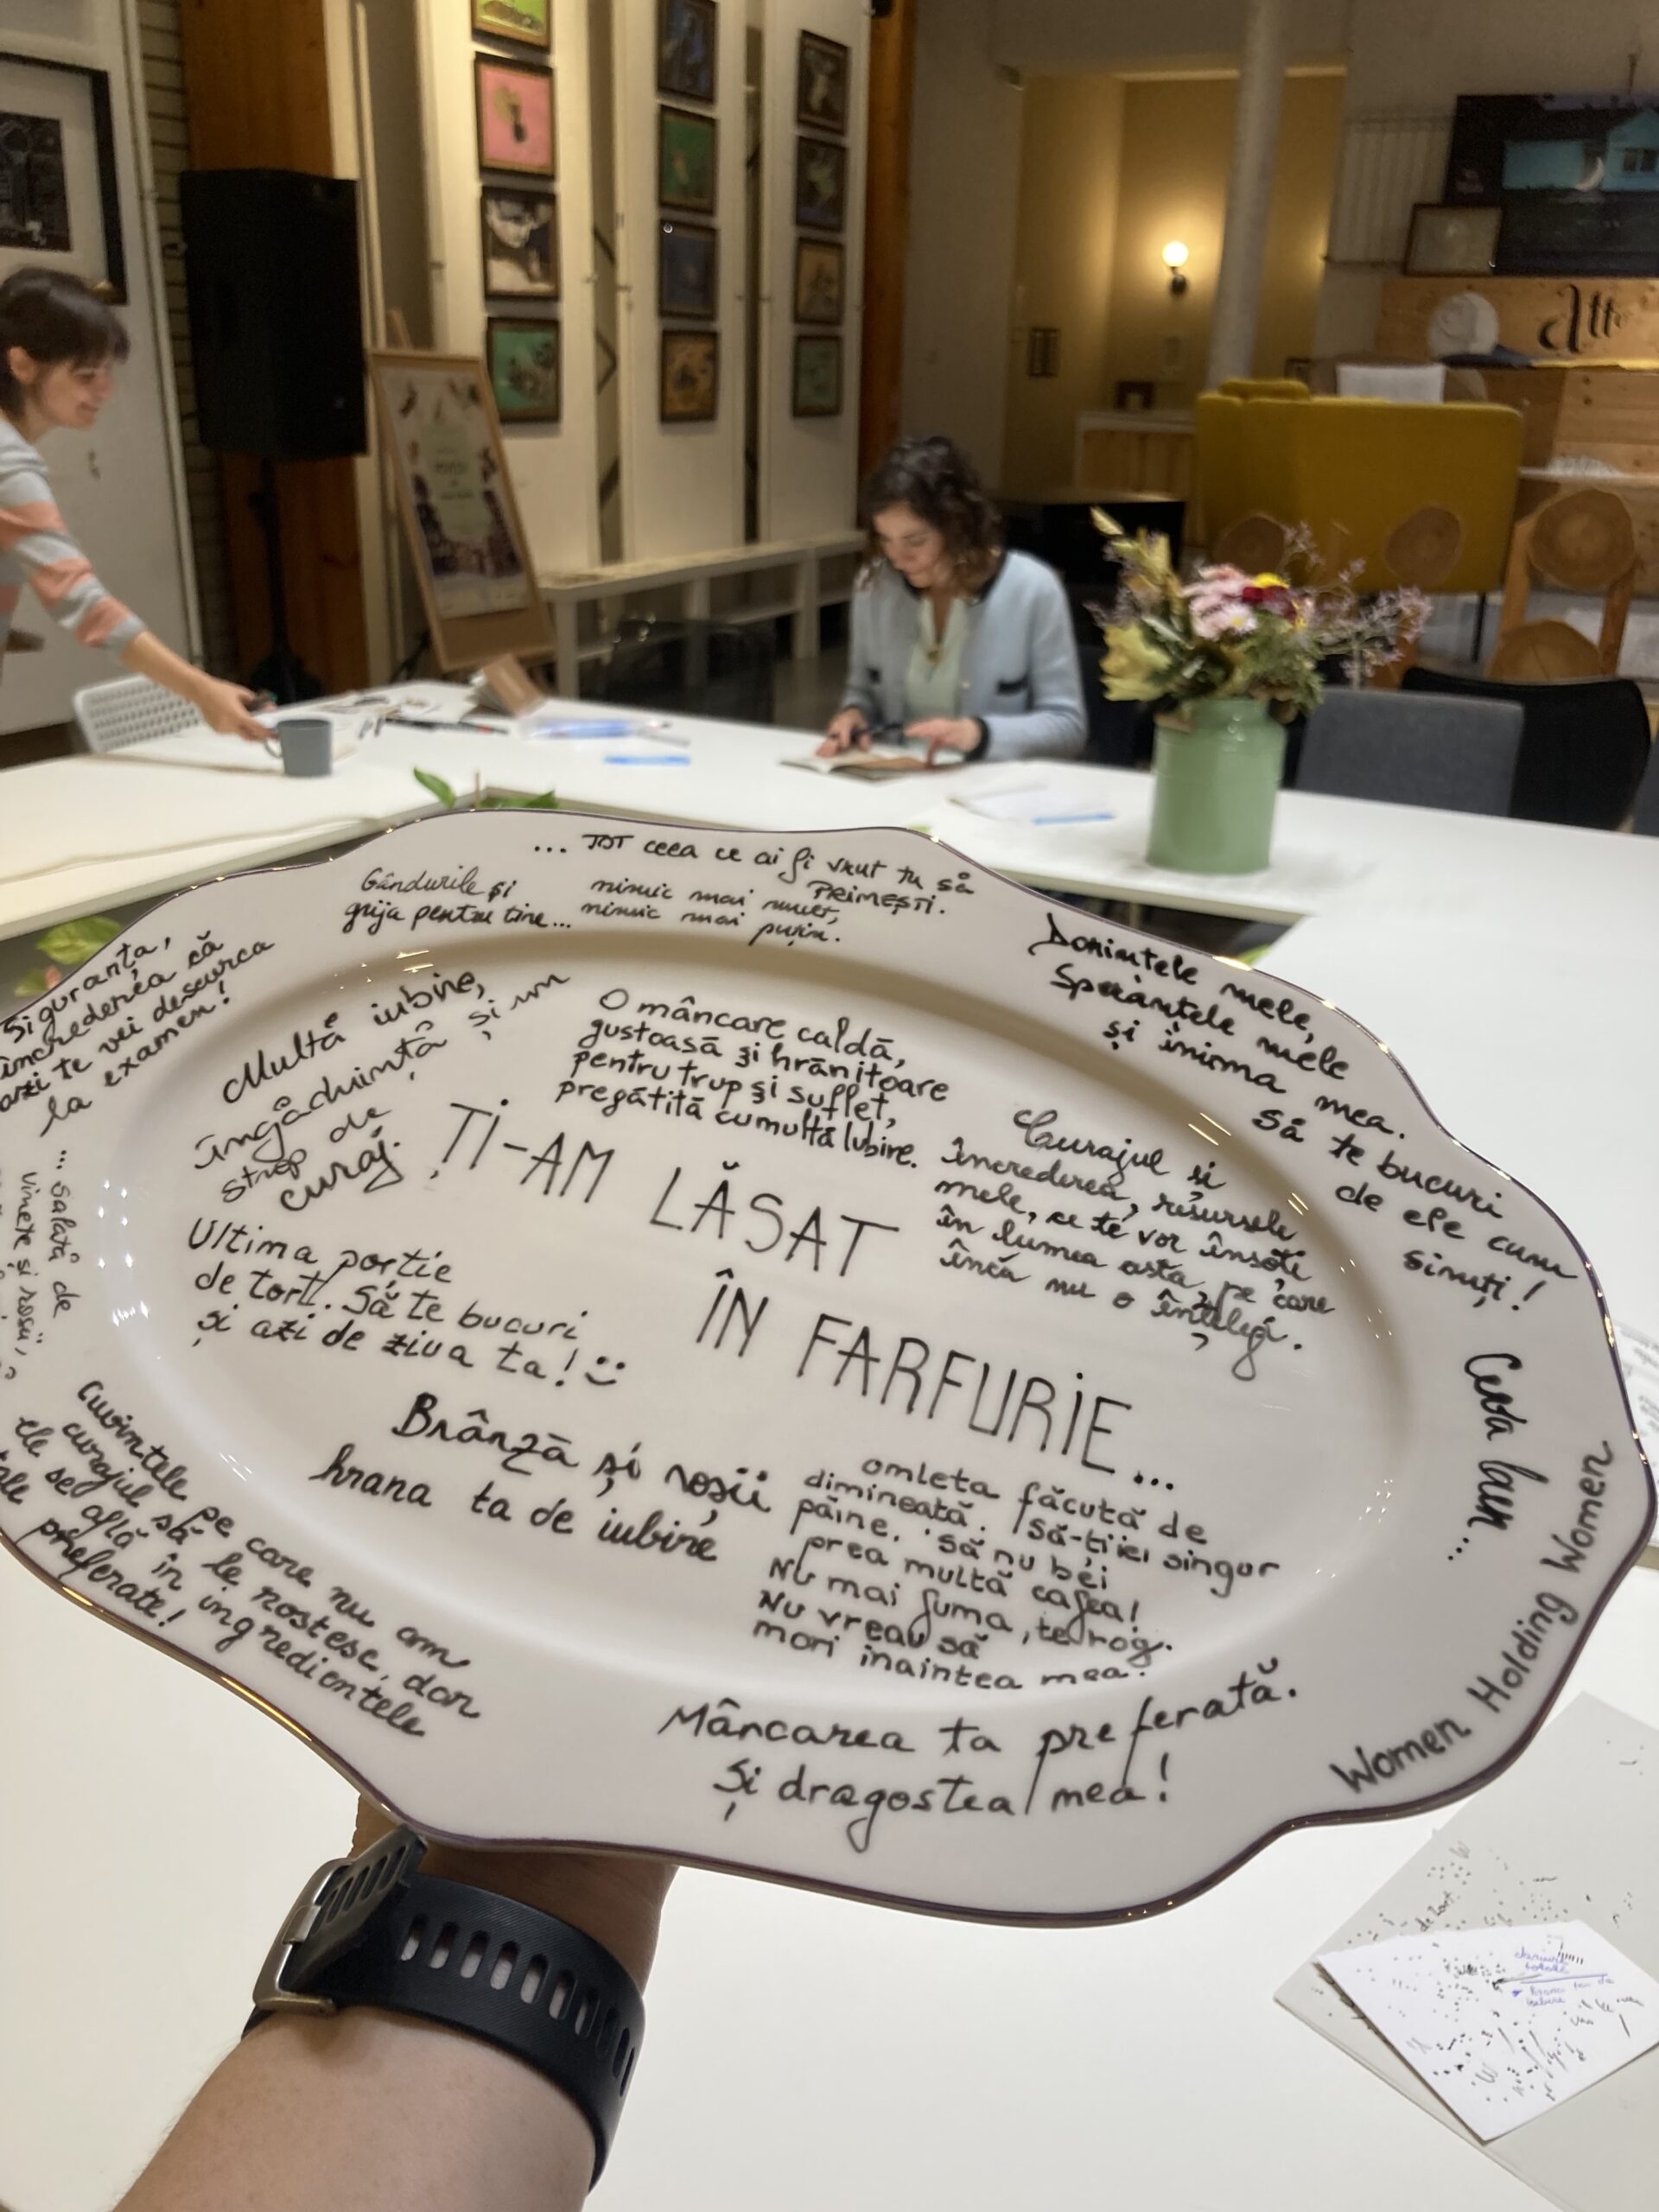 Att
... TOT ceea ce ai fi vrut tu să
PRIMEȘTI.
nimic mai mult,
nimic mai puțin.
Gândurile și
grija pentru tine...
Siguranța,
încrederea că
azi te vei descurca
la examen!
Dorințele mele,
Speranțele mele
și inima mea.
Să te bucuri
de ele cum
simți!
Multă iubire,
îngăduință și un
strop de
curaj.
O mâncare caldă,
gustoasă și hrănitoare
pentru trup și suflet,
pregătită cu multă iubire.
Curajul și
încrederea, resursele
mele, ce te vor însoți
în lumea asta, pe care
încă nu o înțelegi.
ȚI-AM LĂSAT
ÎN FARFURIE...
... Salată de
vinete și roșii,
Ultima porție
de tort. Să te bucuri
și azi de ziua ta! :)
Brânză și roșii
hrana ta de iubire
omleta făcută de
dimineață. Să-ți iei singur
pâine. Să nu bei
prea multă cafea!
Nu mai fuma, te rog.
Nu vreau să
mori înaintea mea.
Cuvintele pe care nu am
curajul să le rostesc, dar
ele se află în ingredientele
tale preferate!
Mâncarea ta preferată.
Și dragostea mea!
Ceva bun...
Women Holding Women